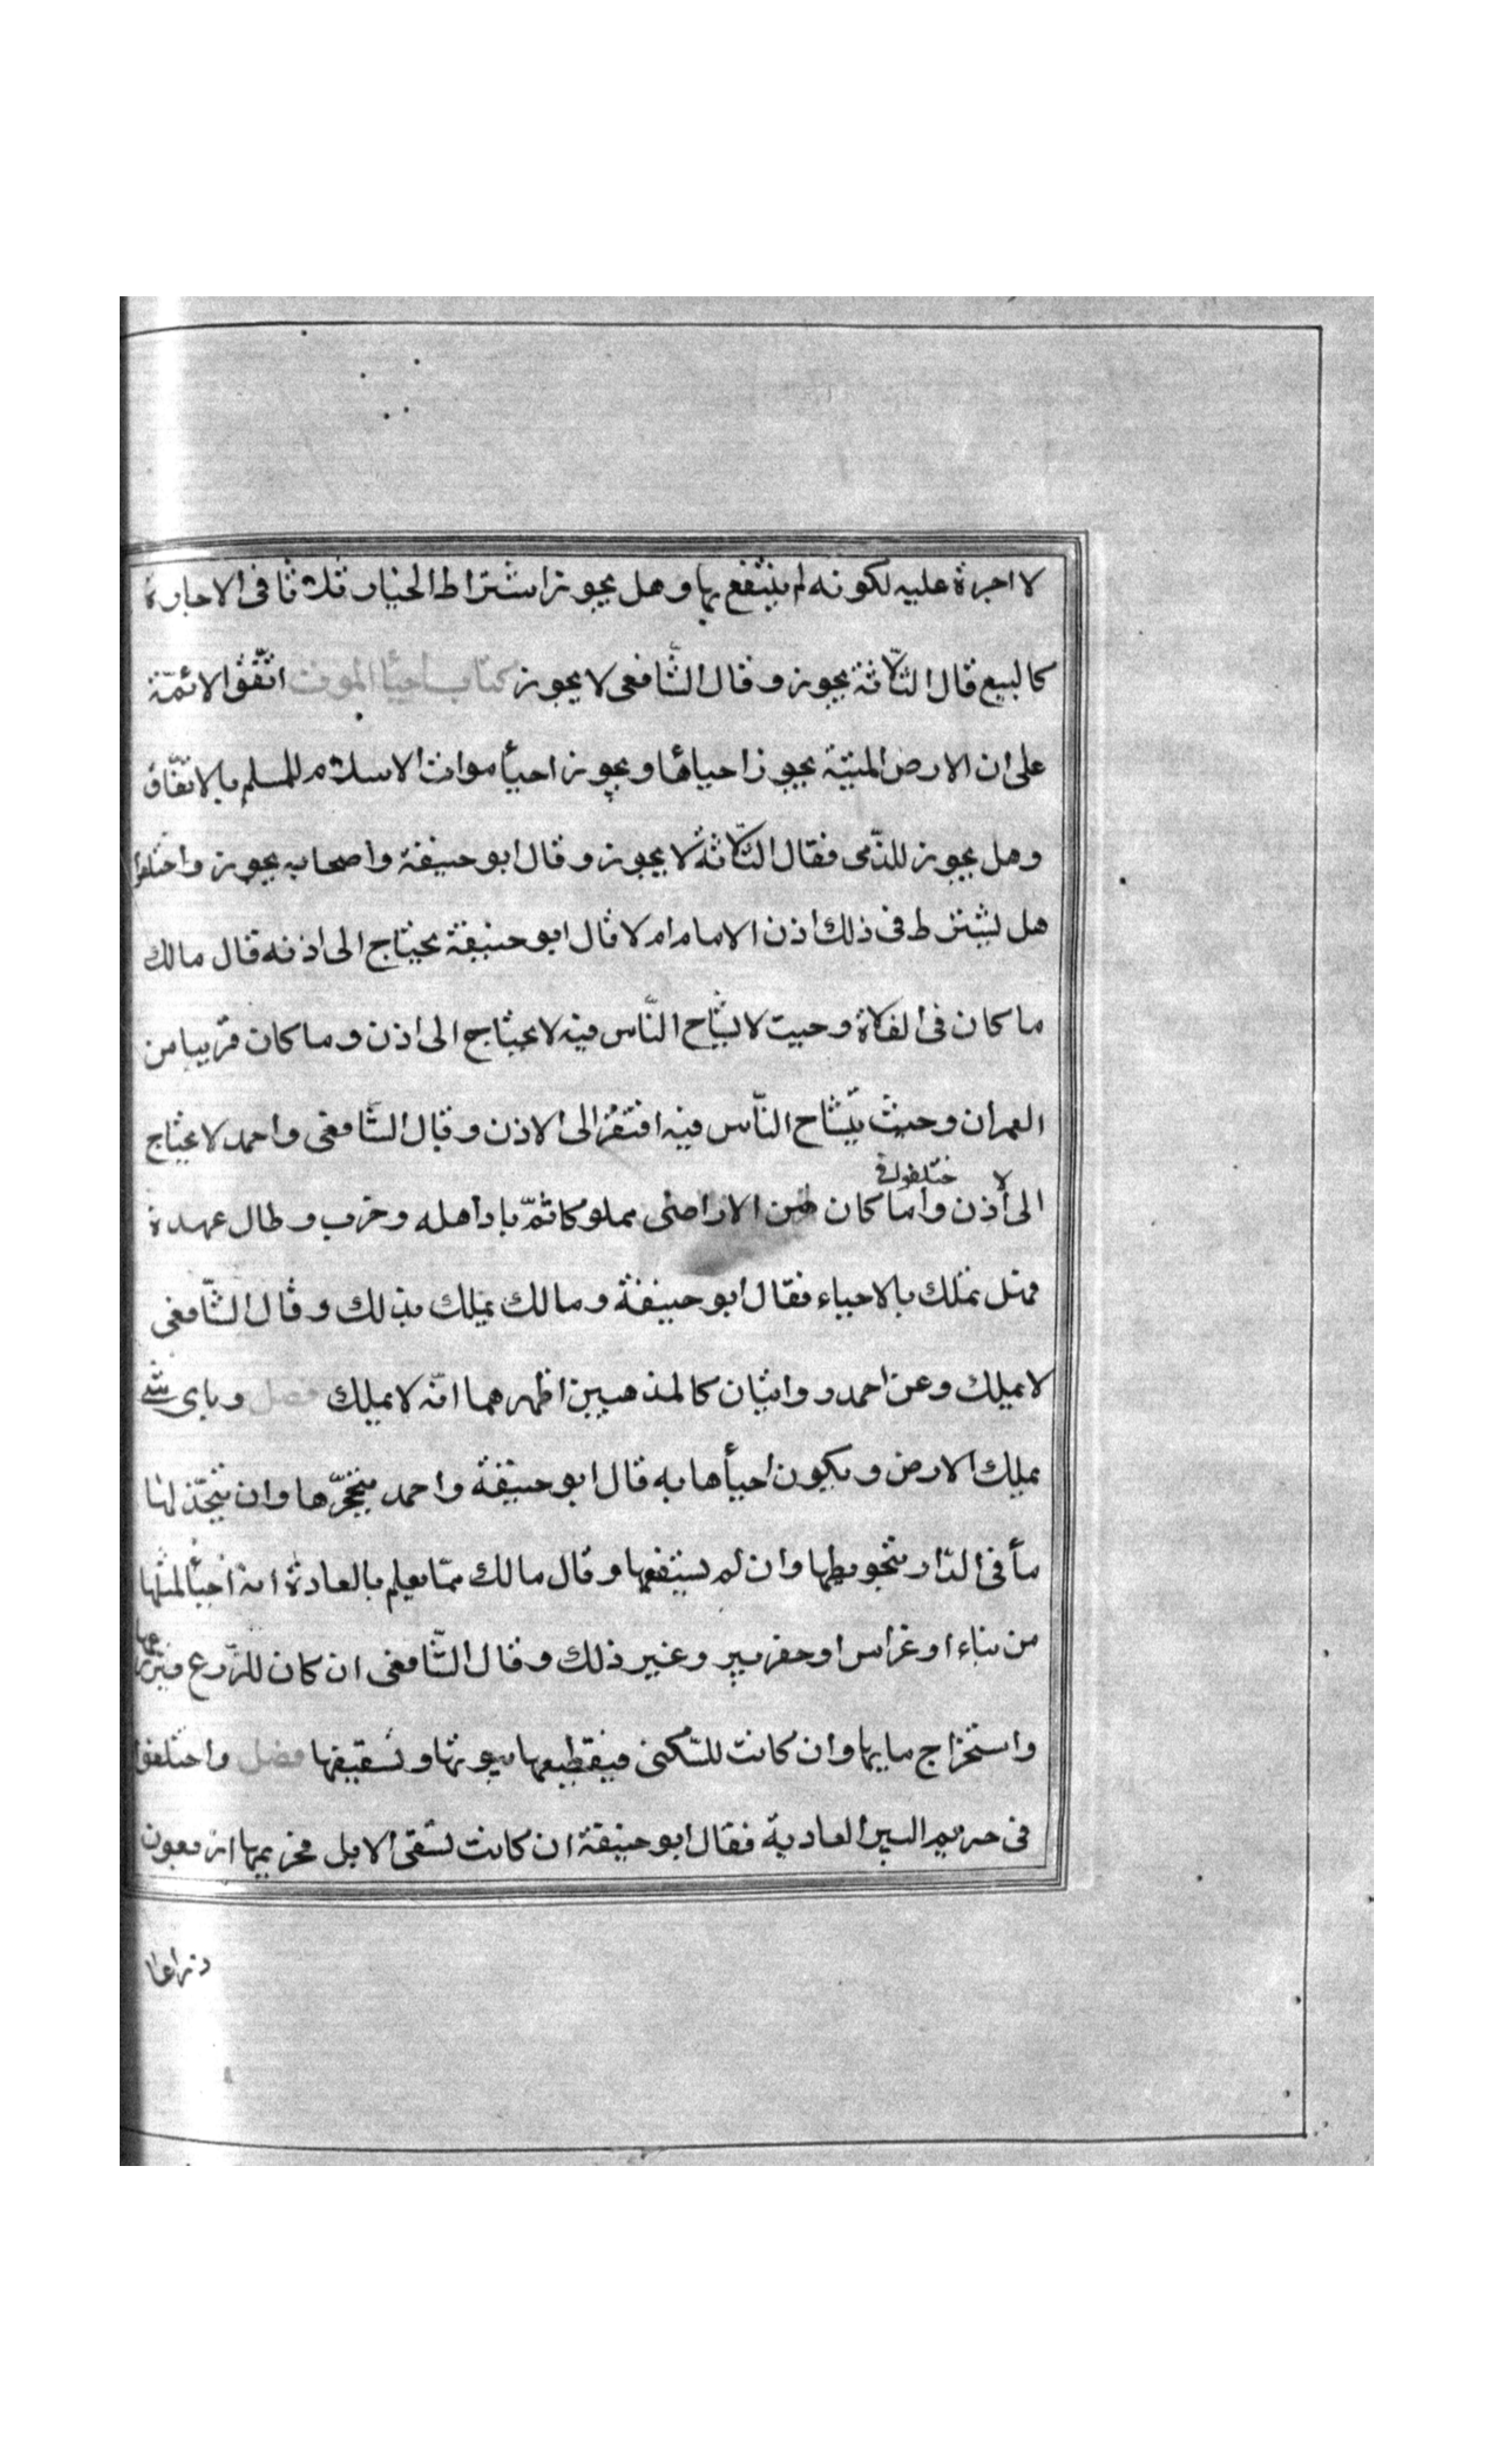 لا اجرة عليه لكونه لم ينتفع بها وهل يجوز اشتراط الخيار ثلاثا فى الاجارة
كالبيع قال الثلاثة يجوز وقال الشافعى لا يجوز كتاب احيأ الموت اتّفقوا الائمّة
على ان الارض الميتة يجوز احياؤها ويجوز احيأ موات الاسلام للمسلم بالاتفّاق
وهل يجوز للذّمى فقال الثلاثة لا يجوز وقال ابو حنيفة واصحابه يجوز واختلفوا
هل يشترط فى ذلك اذن الامام ام لا قال ابو حنيفة يحتاج الى اذنه قال مالك
ما كان فى الفلاة وحيث لا يشاح النّاس فيه لا يحتاج الى اذن وما كان قريبا من
العمران وحيث يتشاح النّاس فيه افتقر الى الاذن وقال الشّافعى واحمد لا يحتاج
ختلفوا فى
الى اذن واما كان من الاراضى مملوكا ثمّ باد اهله وخرب وطال عهدة
فهل تملك بالاحياء فقال ابو حنيفة ومالك يملك بذلك وقال الشّافعى
لا يملك وعن احمد روايتان كالمذهبين اظهرهما انّه لا يملك فصل وباى شئ
يملك الارض ويكون احيأها به قال ابو حنيفة واحمد بتحجّرها وان يتخّذ لها
مأ فى الدّار بتحويطها وان لم يسقفها وقال مالك ممّا يعلم بالعادة انه احيأ لمثلها
من بناء او غراس او حفر بير وغير ذلك وقال الشّافعى ان كان للزّرع فبزرعها
واستخراج مايها وان كانت للسّكنى فبقطيعها بيوتها وتسقيفها فصل واختلفوا
فى حريم البير العادية فقال ابو حنيفة ان كانت لسقى الابل فحريمها اربعون
ذراعا